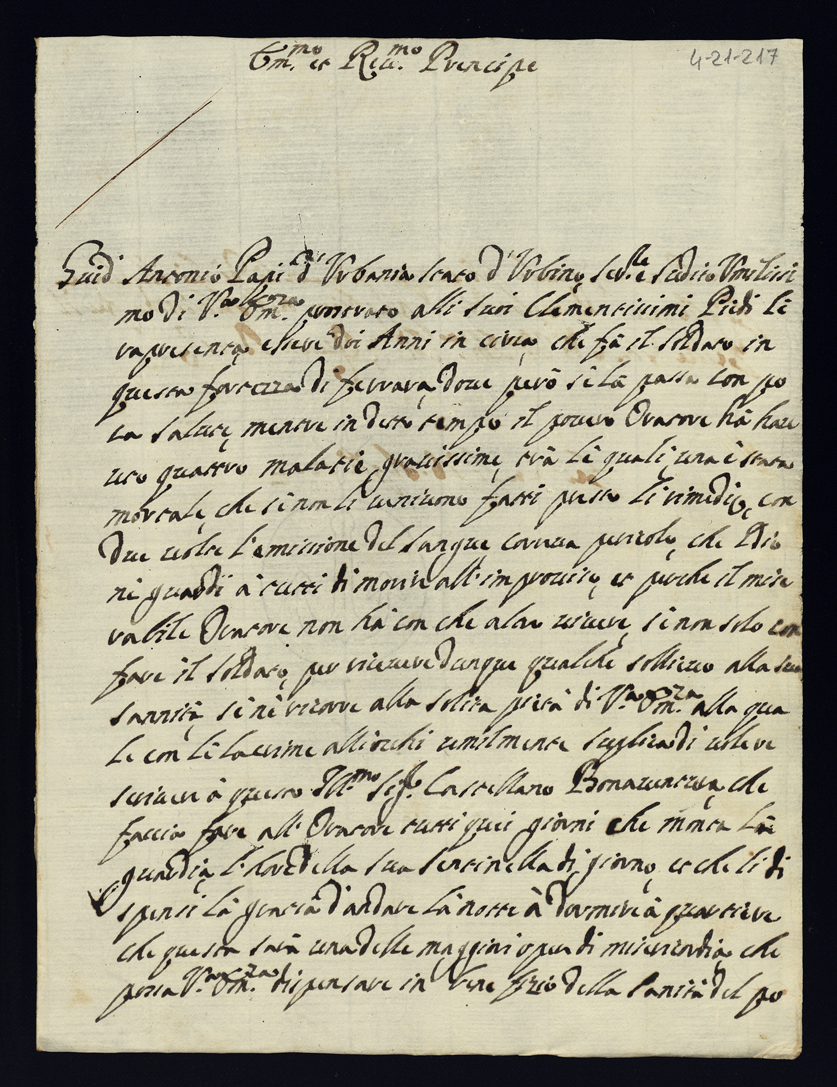 Em.mo et Reu.mo Prencipe
4-21-217
Guid' Antonio Papi d' Vrbania stato d' Vrbino, ser.le e sudito Vmilissi
mo di V.ra Em.za prostrato alli suoi Clementissimi Piedi li
rapresenta, essere doi Anni in circa, che fà il soldato in
questa fortezza di ferrara, doue però se la passa con po
ca salute, mentre in detto tempo il pouero Oratore hà hau
uto quattro malatie grauissime, trà le quali una è stata
mortale, che se non li ueniuono fatti presto li rimedij, con
due uolte l'emissione del sangue correua pericolo, che Idio
ne guardi à tutti di morire all'improuiso, et perche il mise
rabile Oratore non hà con che altro uiuere, se non solo con
fare il soldato, per riceuere dunque qualche sollieuo alla sua
sannità, se ne ricorre alla solita pietà di V.ra Em.za alla qua
le con le lacrime alli ochi umilmente suplica di uolere
scriuere à questo Ill.mo Sig.r Castellano Bonauentura, che
faccia fare all'Oratore tutti quei giorni che monta la
guardia, l'hore della sua sentinella di giorno, et che li di
spensi la gratia d'andare la notte à dormire à quartiere
che questa sarà una delle maggiori opere di misericordia, che
possa V.ra Em.za dispensare in benefizio della sanità del po